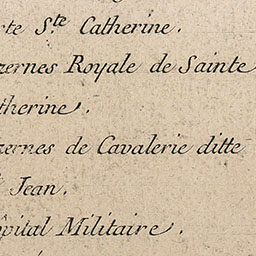 rte S.te Catherine.
zernes Royale de Sainte
therine.
zernes de Cavalerie ditte
Jean.
pital Militaire.